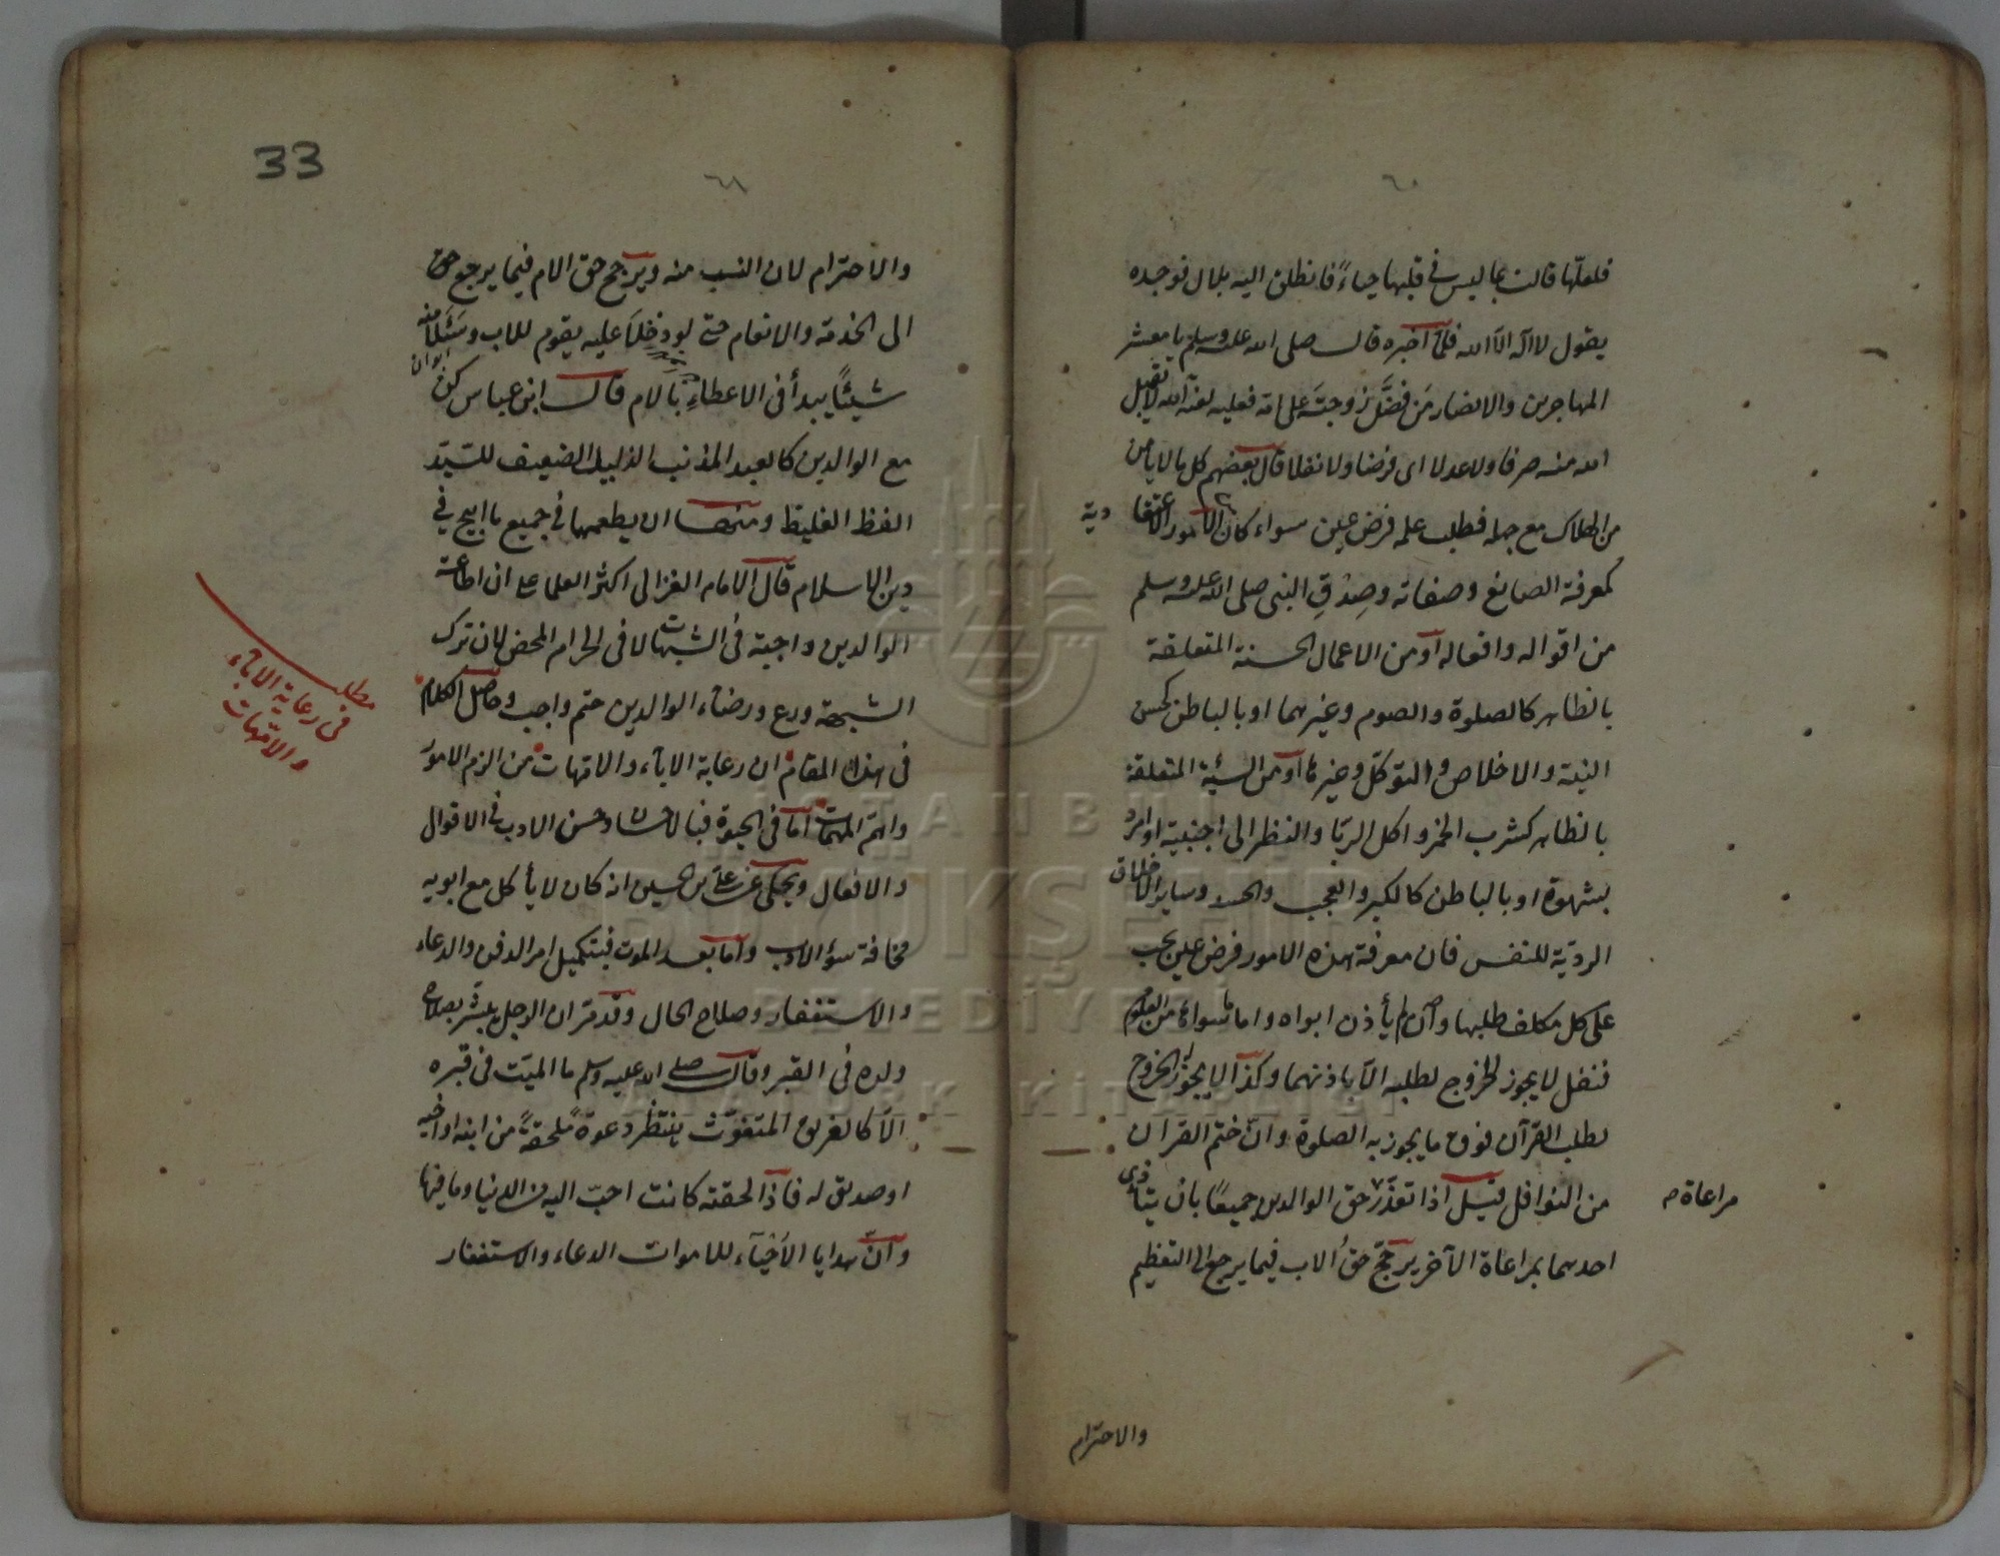 ٦٠
فلعلّها قالت بما ليس في قلبها حياءً فانطلق اليه بلال فوجده
يقول لا اله الّا الله فلمّا اخبره قال صلى الله عليه وسلم يا معشر
المهاجرين والانصار مَن فضَّل زوجتَه على امّه فعليه لعنة الله لا يقبل
الله منه صرفا ولا عدلا اى فرضا ولا نفلا قال بعضهم كل ما لا يأمن
من الهلاك مع جهله فطلب علمه فرض عين سواء كان من الامور الاعتقادية
كمعرفة الصانع وصفاته وصِدْقِ النبى صلى الله عليه وسلم
من اقواله وافعاله او من الاعمال الحسنة المتعلقة
بالظاهر كالصلوة والصوم وغيرهما او بالباطن كحسن
النية والاخلاص والتوكّل وغيرها او من السيئة المتعلقة
بالظاهر كشرب الخمر واكل الربّا والنظر الى اجنبية او امرد
بشهوة او بالباطن كالكبر والعجب والحسد وساير الاخلاق
الرديّة للنفس فان معرفة هذه الامور فرض عين يجب
على كل مكلف طلبها وان لم يأذن ابواه واما ما سواها من العلوم
فنفل لا يجوز الخروج لطلبه الّا باذنهما وكذا لا يجوز الخروج
لطلب القرآن فوق ما يجوز به الصلوة وانّ ختم القرآن
من النوافل قيل اذا تعذّر حق الوالدين جميعًا بان يتأذى
مراعاة
احدهما بمراعاة الآخر يرجّح حقُ الاب فيما يرجع الى التعظيم
والاحترام
33
٦١
والاحترام لان النسب منه ويرجّح حق الام فيما يرجع حق
الى الخدمة والانعام حتى لو دخلَا عليه يقوم للاب وسَئَلَا منه
شيئًا يبدأ فى الاعطاءِ بالام قال ابن عباس كن
مع الوالدين كالعبد المذنب الذليل الضعيف للسيّد
الفظ الغليظ ومنها ان يطعمهما فى جميع ما ابيح فى
دين الاسلام قال الامام الغزالى اكثر العلما على ان اطاعة
الوالدين واجبة فى الشبهات لا فى الحرام المحض لان ترك
الشبهة ورع ورضاء الوالدين حتم واجب وحاصل الكلام
فى هذا المقام ان رعاية الاباء والامّهات من الزم الامور
واهمّ المهمات امّا فى الحيوة فبالاحسان وحسن الادب فى الاقوال
والافعال ويحكى عن على بن الحسين انه كان لا يأكل مع ابويه
مخافة سؤ الادب وامّا بعد الموت فبتكميل امر الدفن والدعاء
والاستغفار وصلاح الحال وقد مرّ ان الرجل يبشّر بصلاح
ولده فى القبر وقال صلى الله عليه وسلم ما الميّت فى قبره
الّا كالغريق المتغوّث ينتظر دعوةً ملحقةً من ابنه او اخيه
او صديق له فاذا لحقته كانت احبّ اليه من الدنيا وما فيها
وانّ هدايا الاَحْياَء للاموات الدعاء والاستغفار
مطلب
فى رعاية الاباء
والامّهات